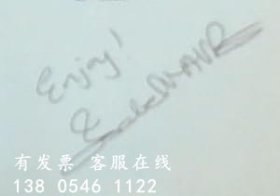 Enjoy!
有发票 客服在线
138 0546 1122